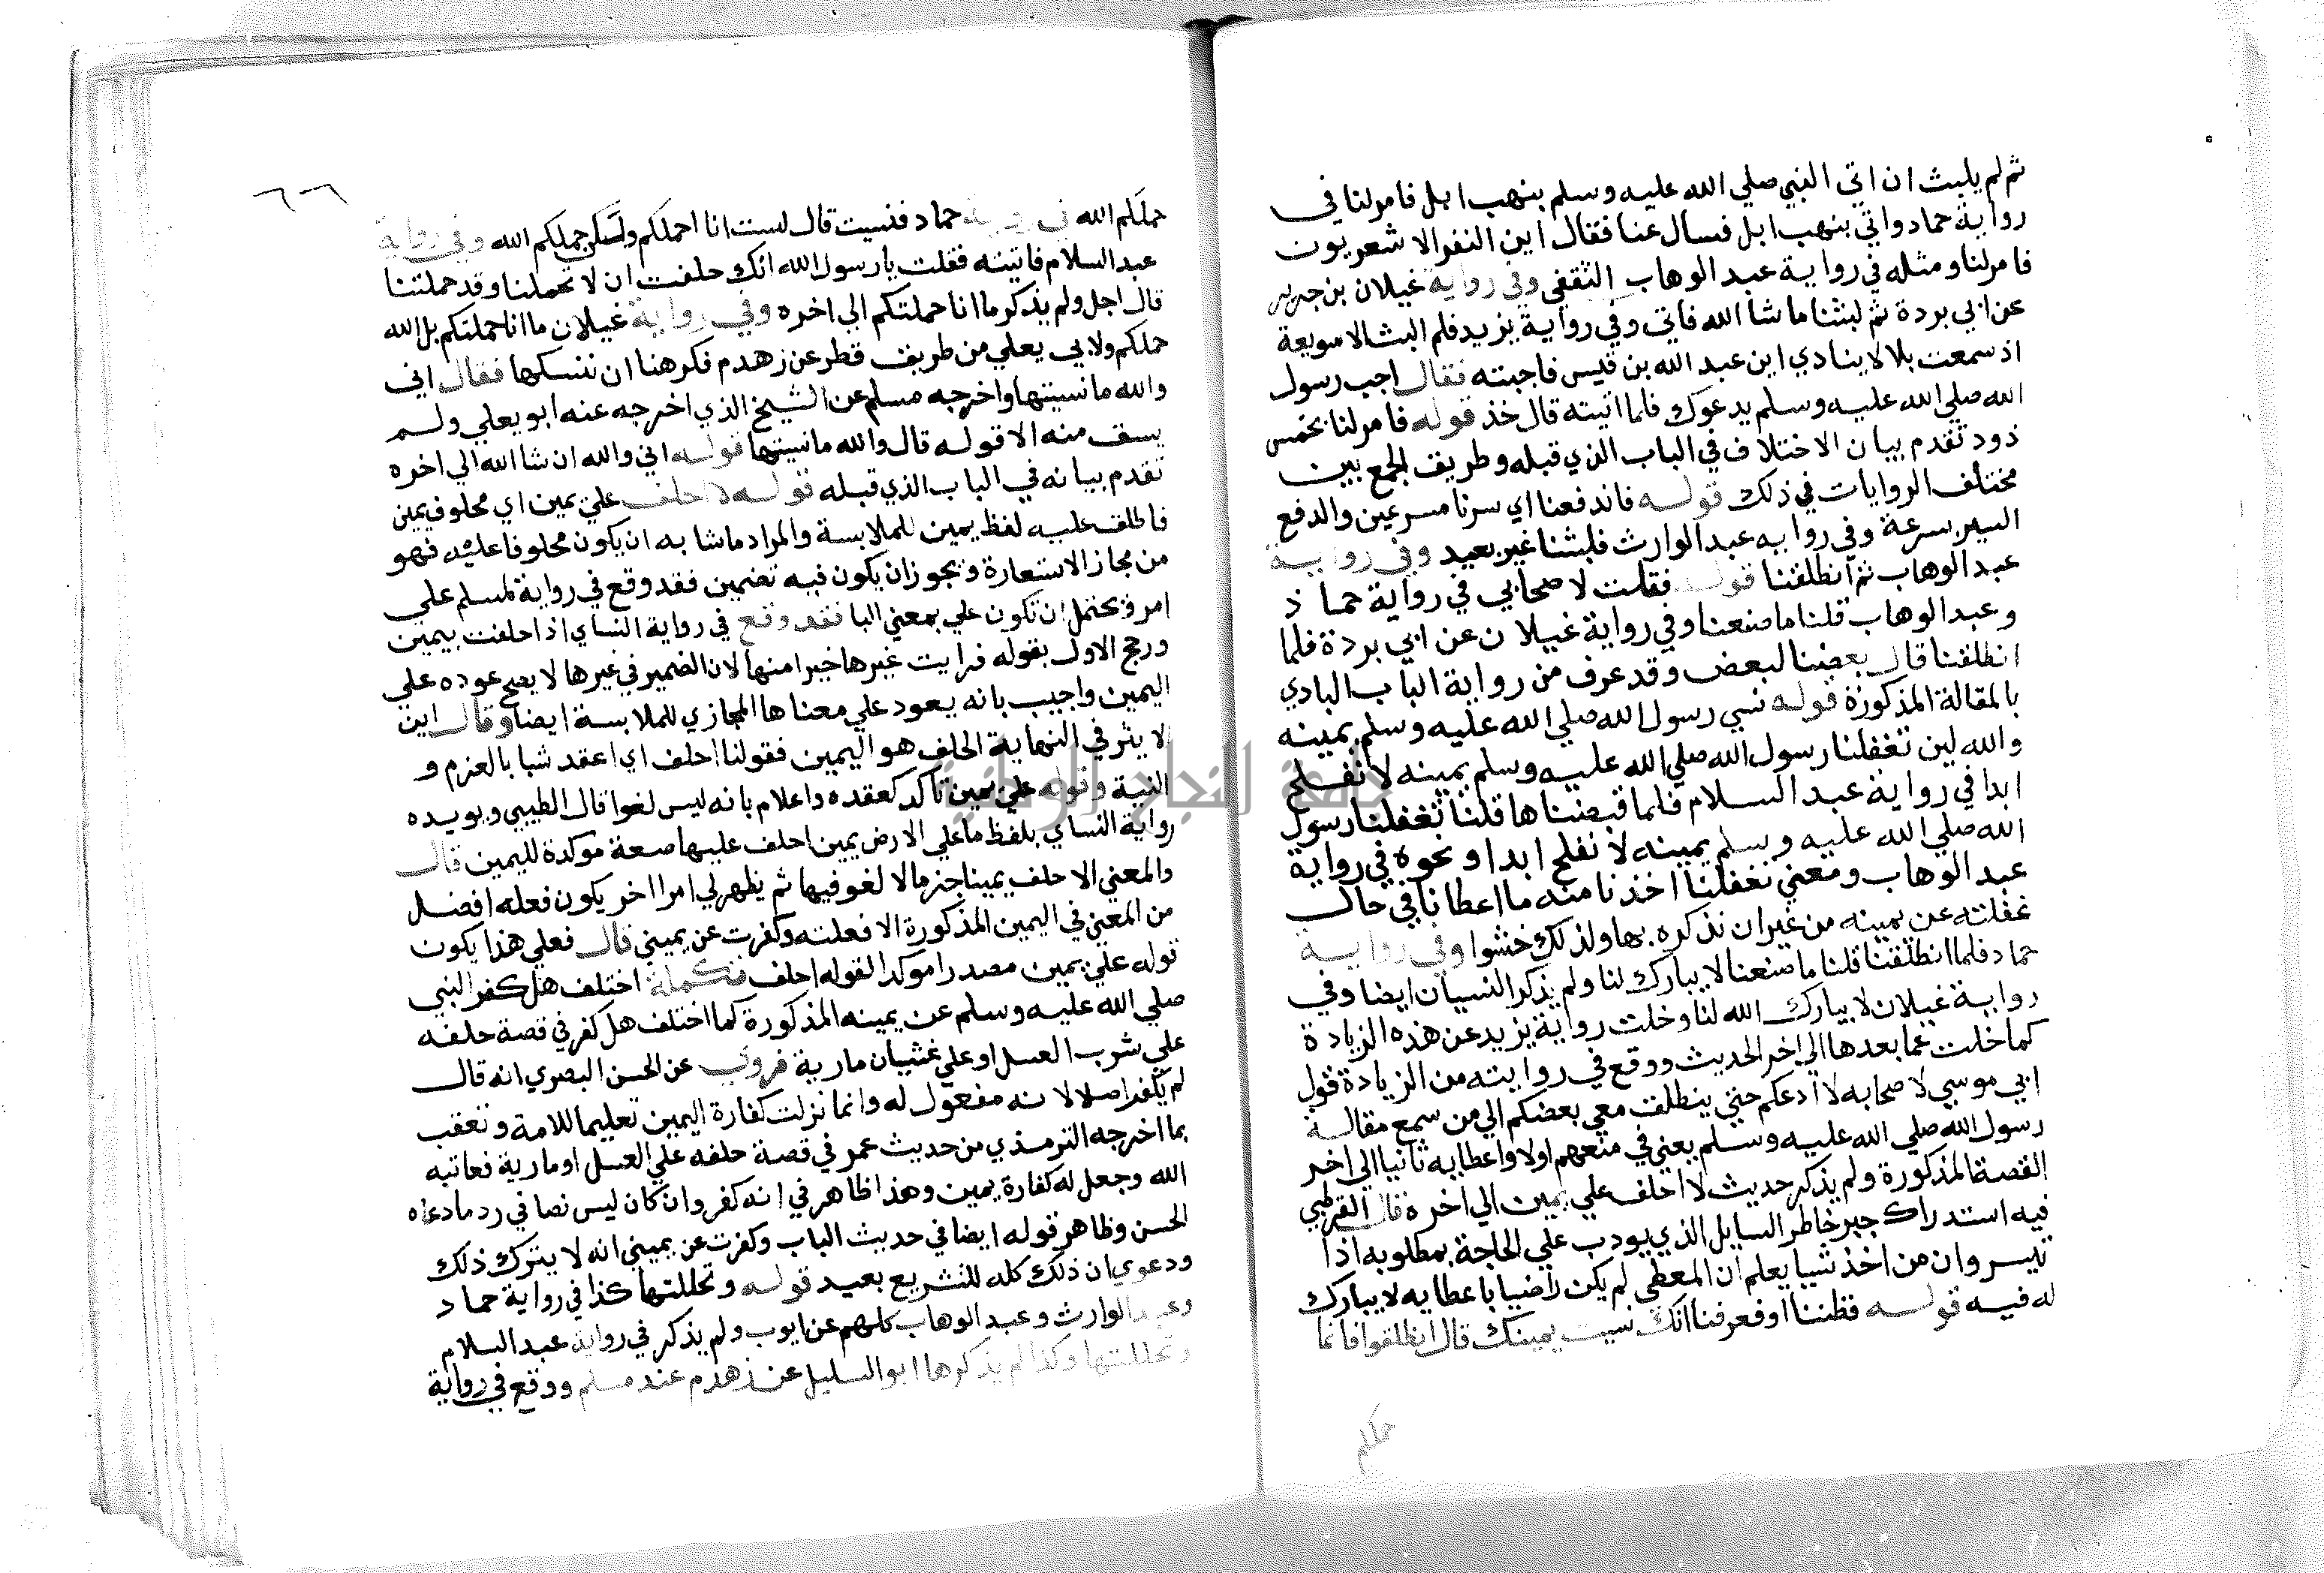 ثم لم يلبث ان اتي النبي صلي الله عليه وسلم بنهب ابل فامر لنا في
رواية حماد واتي بنهب ابل فسال عنا فقال اين النفر الاشعريون
فامر لنا ومثله في رواية عبد الوهاب الثقفي وفي رواية غيلان بن جرير
عن ابي بردة ثم لبثنا ما شا الله فاتي وفي رواية يزيد فلم البث الا سويعة
اذ سمعت بلالا ينادي اين عبد الله بن قيس فاجبته فقال اجب رسول
الله صلي الله عليه وسلم يدعوك فلما اتيته قال خذ قوله فامر لنا بخمس
ذود تقدم بيان الاختلاف في الباب الذي قبله وطريق الجمع بين
مختلف الروايات في ذلك قوله فاندفعنا اي سرنا مسرعين والدفع
السير بسرعة وفي روايه عبد الوارث فلبثنا غير بعيد وفي رواية
عبد الوهاب ثم انطلقنا قوله فقلت لاصحابي في رواية حماد
وعبد الوهاب قلنا ما صنعنا وفي رواية غيلان عن ابي بردة فلما
انطلقنا قال بعضنا لبعض وقد عرف من رواية الباب البادي
بالمقالة المذكورة قوله نسي رسول الله صلي الله عليه وسلم يمينه
والله لين تغفلنا رسول الله صلي الله عليه وسلم يمينه لا نفلح
ابدا في رواية عبد السلام فلما قبضناها قلنا تغفلنا رسول
الله صلي الله عليه وسلم يمينه لا نفلح ابدا ونحوه في رواية
عبد الوهاب ومعني تغفلنا اخذنا منه ما اعطانا في حال
غفلته عن يمينه من غير ان نذكره بها ولذلك خشوا وفي رواية
حماد فلما انطلقنا قلنا ما صنعنا لا يبارك لنا ولم يذكر النسيان ايضا وفي
رواية غيلان لا يبارك الله لنا وخلت رواية يزيد عن هذه الزيادة
كما خلت عما بعدها الي اخر الحديث ووقع في روايته من الزيادة قول
ابي موسي لاصحابه لا ادعكم حتي ينطلق معي بعضكم الي من سمع مقالة
رسول الله صلي الله عليه وسلم يعني في منعهم اولا واعطايه ثانيا الي اخر
القصة المذكورة ولم يذكر حديث لا احلف علي يمين الي اخره قال القرطبي
فيه استدراك جبر خاطر السايل الذي يودب علي الحاجة بمطلوبه اذا
تيسر وان من اخذ شيا يعلم ان المعطي لم يكن راضيا باعطايه لا يبارك
له فيه قوله فظننا او فعرفنا انك نسيت يمينك قال انطلقوا فانما
حملكم
٦٦
حملكم الله في رواية حماد فنسيت قال لست انا احملكم ولكن حملكم الله وفي رواية
عبد السلام فاتيته فقلت يا رسول الله انك حلفت ان لا تحملنا وقد حملتنا
قال اجل ولم يذكر ما انا حملتكم الي اخره وفي رواية غيلان ما انا حملتكم بل الله
حملكم ولابي يعلي من طريق قطر عن زهدم فكرهنا ان ننسكها فقال اني
والله ما نسيتها واخرجه مسلم عن الشيخ الذي اخرجه عنه ابو يعلي ولم
يسق منه الا قوله قال والله ما نسيتها قوله اني والله ان شا الله الي اخره
تقدم بيانه في الباب الذي قبله قوله لا احلف علي يمين اي محلوف يمين
فاطلق عليه لفظ يمين للملابسة والمراد ما شابه ان يكون محلوفا عليه فهو
من مجاز الاستعارة ويجوز ان يكون فيه تضمين فقد وقع في رواية لمسلم علي
امر ويحتمل ان تكون علي بمعني البا فقد وقع في رواية النساي اذا حلفت بيمين
ورجح الاول بقوله فرايت غيرها خيرا منها لان الضمير في غيرها لا يصح عوده علي
اليمين واجيب بانه يعود علي معناها المجازي للملابسة ايضا وقال ابن
الاثير في النهاية الحلف هو اليمين فقولنا احلف اي اعقد شيا بالعزم و
النية وقوله علي يمين تاكد كعقده واعلام بانه ليس لغوا قال الطيبي ويويده
رواية النساي بلفظ ما علي الارض يمين احلف عليها صعة موكدة لليمين قال
والمعني لا احلف يمينا جزما لا لغو فيها ثم يظهر لي امرا اخر يكون فعله افضل
من المعني في اليمين المذكورة الا فعلته وكفرت عن يميني قال فعلي هذا يكون
قوله علي يمين مصدرا موكدا لقوله احلف تكملة اختلف هل كفر النبي
صلي الله عليه وسلم عن يمينه المذكورة كما اختلف هل كفر في قصة حلفه
علي شرب العسل او علي غشيان مارية فروي عن الحسن البصري انه قال
لم يكفر اصلا لانه مغفول له وانما نزلت كفارة اليمين تعليما للامة وتعقب
بما اخرجه الترمذي من حديث عمر في قصة حلفه علي العسل او مارية فعاتبه
الله وجعل له كفارة يمين وهذا ظاهر في انه كفر وان كان ليس نصا في رد ما دعاه
الحسن وظاهر قوله ايضا في حديث الباب وكفرت عن يميني انه لا يترك ذلك
ودعوي ان ذلك كله للتشريع بعيد قوله وتحللتها كذا في رواية حماد
وعبد الوارث وعبد الوهاب كلهم عن ايوب ولم يذكر في رواية عبد السلام
وتحللتها وكذا لم يذكرها ابو السليل عن زهدم عند مسلم ووقع في رواية
جامعة النجاح الوطنية